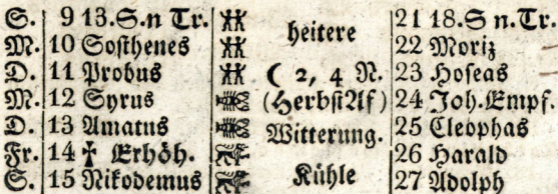 S. 9 13.S.n Tr. heitere 21 18.S n.Tr.
M. 10 Sosthenes 22 Moriz
D. 11 Probus ☾ 2, 4 N. 23 Hoseas
M. 12 Syrus (HerbstAf) 24 Joh. Empf.
D. 13 Amatus Witterung. 25 Cleophas
Fr. 14 † Erhöh. 26 Harald
S. 15 Nikodemus Kühle 27 Adolph